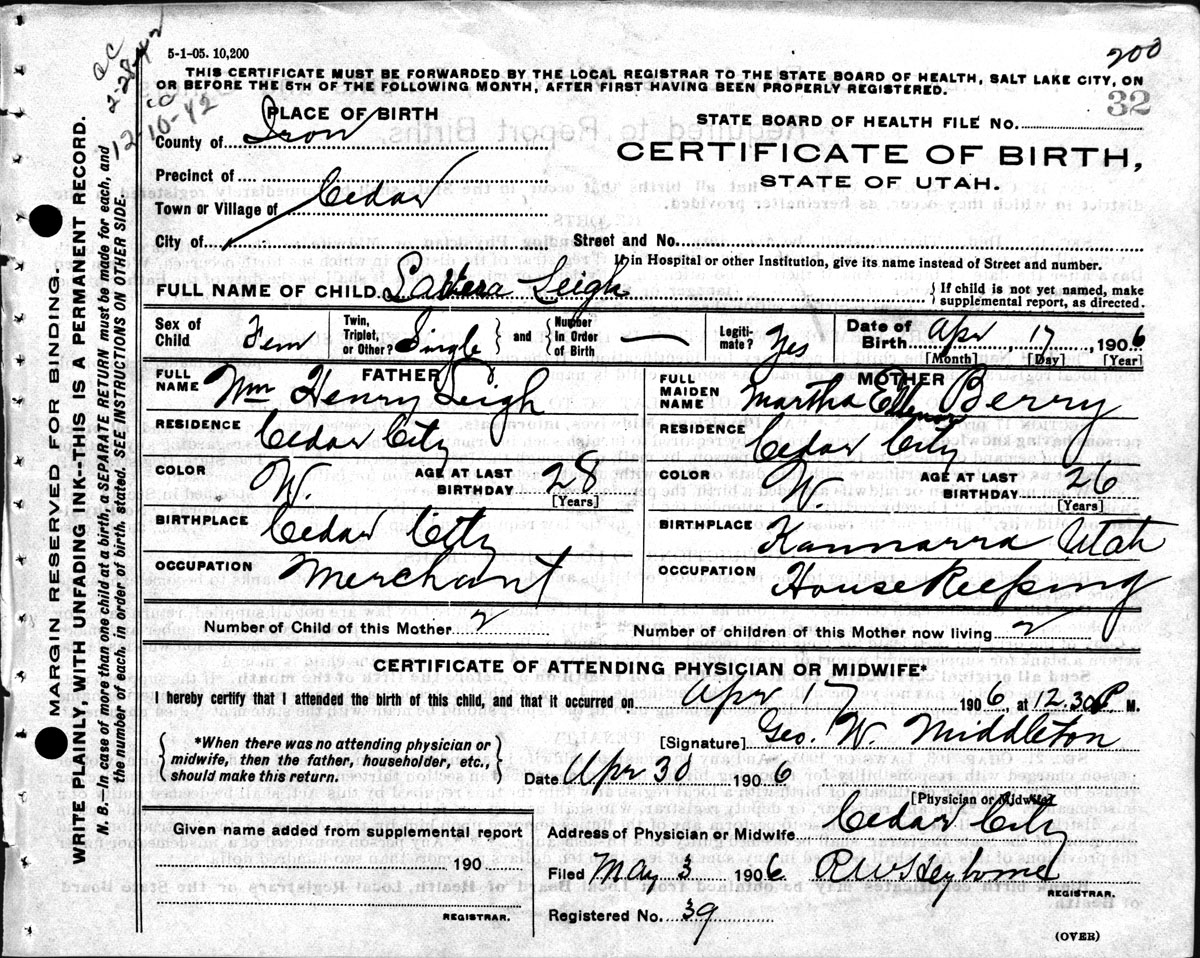 5-1-05. 10,200
200
THIS CERTIFICATE MUST BE FORWARDED BY THE LOCAL REGISTRAR TO THE STATE BOARD OF HEALTH, SALT LAKE CITY, ON
OR BEFORE THE 5TH OF THE FOLLOWING MONTH, AFTER FIRST HAVING BEEN PROPERLY REGISTERED.
32
PLACE OF BIRTH
STATE BOARD OF HEALTH FILE No.
County of Iron
CERTIFICATE OF BIRTH,
STATE OF UTAH.
Precinct of
Town or Village of Cedar
City of
Street and No.
If in Hospital or other Institution, give its name instead of Street and number.
FULL NAME OF CHILD. Leigh
If child is not yet named, make
supplemental report, as directed.
Sex of Child Fem
Twin, Triplet, or Other? Single and Number In Order of Birth —
Legitimate? Yes
Date of Birth Apr 17, 1906
[Month] [Day] [Year]
FATHER
FULL NAME Wm Henry Leigh
RESIDENCE Cedar City
COLOR W. AGE AT LAST BIRTHDAY 28
[Years]
BIRTHPLACE Cedar City
OCCUPATION Merchant
MOTHER
FULL MAIDEN NAME Martha Ellenor Berry
RESIDENCE Cedar City
COLOR W. AGE AT LAST BIRTHDAY 26
[Years]
BIRTHPLACE Kannarra Utah
OCCUPATION House Keeping
Number of Child of this Mother 2
Number of children of this Mother now living 2
CERTIFICATE OF ATTENDING PHYSICIAN OR MIDWIFE*
I hereby certify that I attended the birth of this child, and that it occurred on Apr 17 1906, at 12.30 P M.
*When there was no attending physician or
midwife, then the father, householder, etc.,
should make this return.
[Signature] Geo. W. Middleton
Date Apr 30 1906
[Physician or Midwife]
Given name added from supplemental report
190
REGISTRAR.
Address of Physician or Midwife Cedar City
Filed May 3 1906. R W Heyborne
REGISTRAR.
Registered No. 39
(OVER)
MARGIN RESERVED FOR BINDING.
WRITE PLAINLY, WITH UNFADING INK--THIS IS A PERMANENT RECORD.
N. B.—In case of more than one child at a birth, a SEPARATE RETURN must be made for each, and
the number of each, in order of birth, stated. SEE INSTRUCTIONS ON OTHER SIDE.
2-28-42
12-10-42